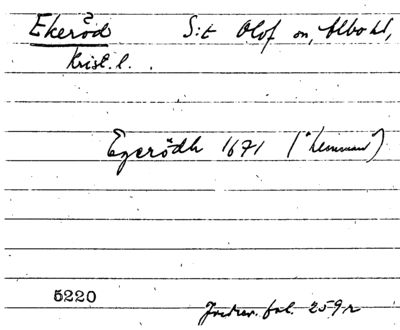 Ekeröd S:t Olof sn, Albo hd,
Krist. l.
Egerödh 1671 (hemman)
5220 Jordrev. fol. 259 r